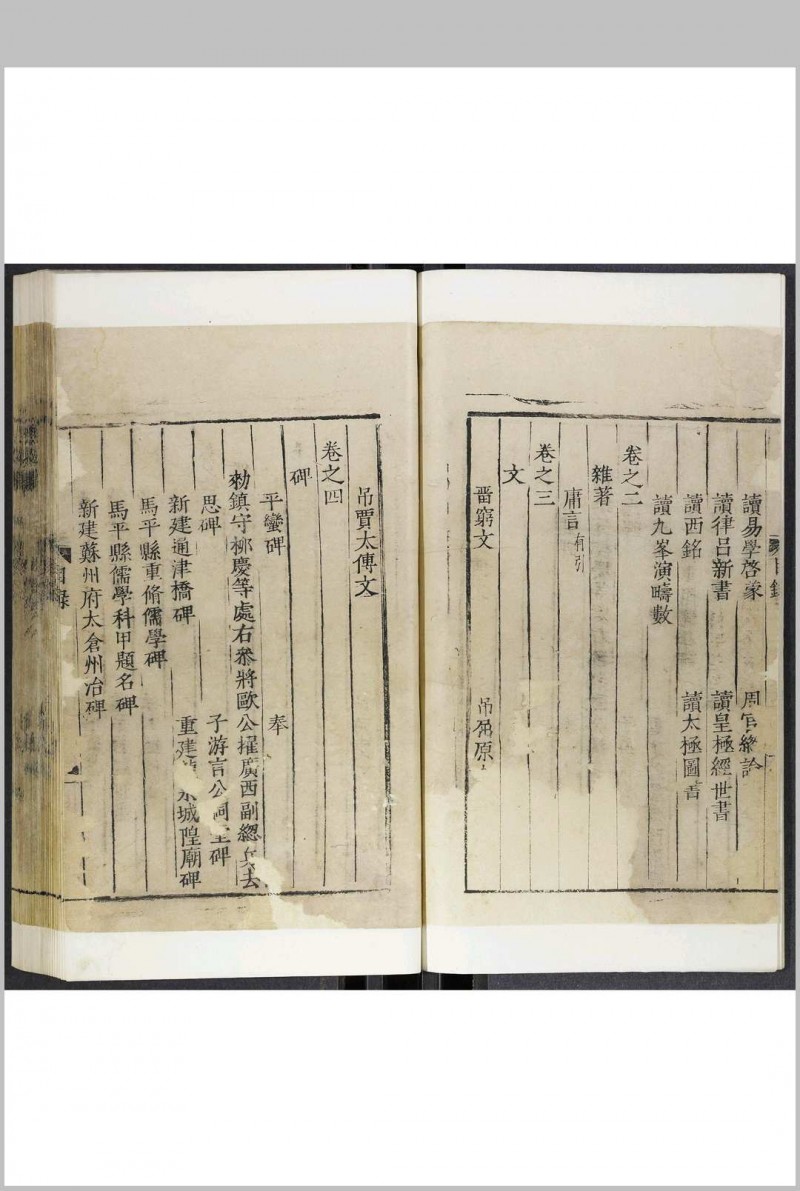 目錄
讀易學啓蒙 周官總論
讀律呂新書 讀皇極經世書
讀西銘 讀太極圖書
讀九峯演疇數
卷之二
雜著
庸言有引
卷之三
文
晋窮文 吊屈原
吊賈太傅文
卷之四
碑
平蠻碑 奉
勑鎮守柳慶等處右叅將歐公擢廣西副緫兵去
思碑 子游言公祠堂碑
新建通津橋碑 重建 城隍廟碑
馬平縣重脩儒學碑
馬平縣儒學科甲題名碑
新建蘇州府太倉州治碑
目録